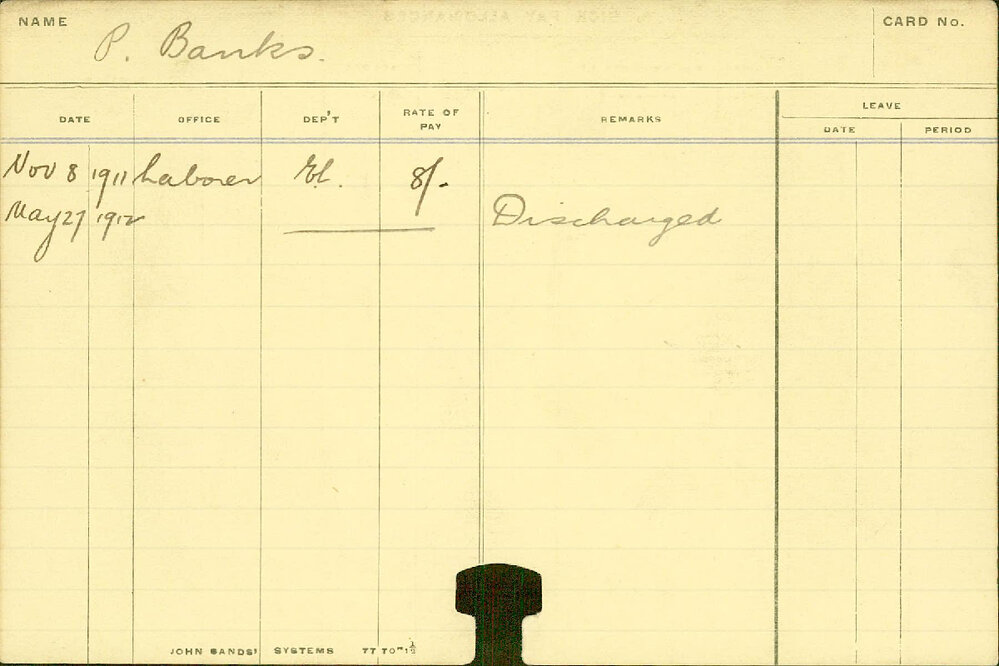 NAME P. Banks. CARD No.
DATE OFFICE DEP'T RATE OF PAY REMARKS LEAVE
DATE PERIOD
Nov 8 1911 Laborer El. 8/-
May 27 1912 Discharged
JOHN SANDS' SYSTEMS 77 TO